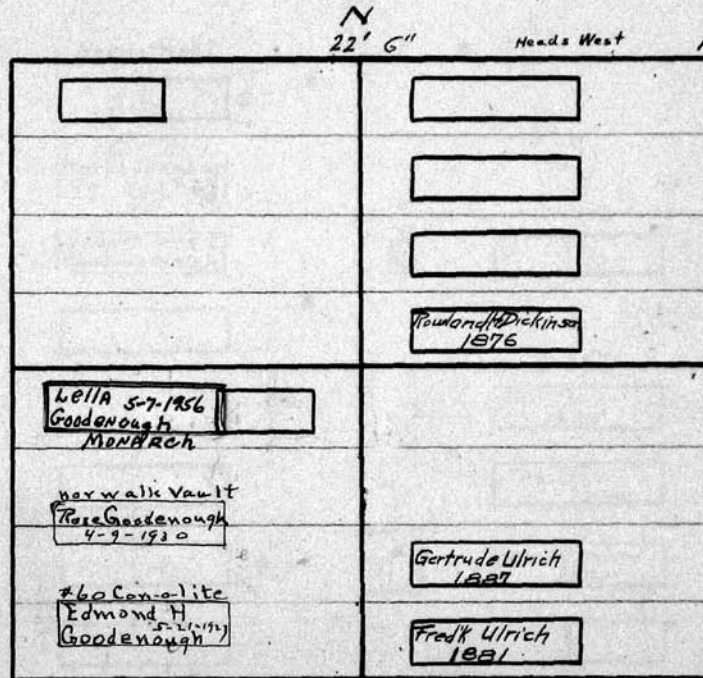 N
22' 6" Heads West
Rowland H Dickinson
1876
Lella 5-7-1956
Goodenough
Monarch
norwalk Vault
Rose Goodenough
4-9-1930
#60 Con-o-lite
Edmond H
Goodenough
Gertrude Ulrich
1887
Fred'k Ulrich
1881